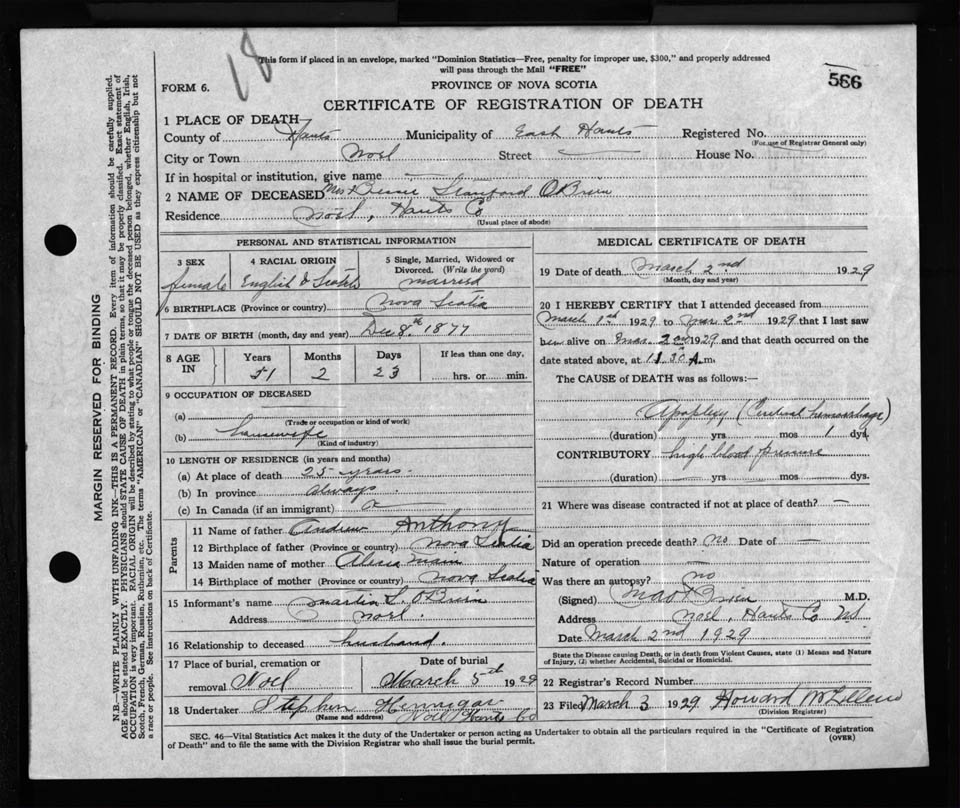 18
This form if placed in an envelope, marked "Dominion Statistics—Free, penalty for improper use, $300," and properly addressed
will pass through the Mail "FREE"
566
FORM 6.
PROVINCE OF NOVA SCOTIA
CERTIFICATE OF REGISTRATION OF DEATH
1 PLACE OF DEATH
County of Hants Municipality of East Hants Registered No.
(For use of Registrar General only)
City or Town Noel Street — House No. —
If in hospital or institution, give name —
2 NAME OF DECEASED Mrs Stanford O'Brien
Residence Noel, Hants Co
(Usual place of abode)
PERSONAL AND STATISTICAL INFORMATION
3 SEX
female
4 RACIAL ORIGIN
English & Scotch
5 Single, Married, Widowed or
Divorced. (Write the word)
married
6 BIRTHPLACE (Province or country) Nova Scotia
7 DATE OF BIRTH (month, day and year) Dec 8th 1877
8 AGE IN Years 51 Months 2 Days 23 If less than one day, hrs. or min.
9 OCCUPATION OF DECEASED
(a)
(Trade or occupation or kind of work)
(b) housewife
(Kind of industry)
10 LENGTH OF RESIDENCE (in years and months)
(a) At place of death 25 years
(b) In province always
(c) In Canada (if an immigrant)
Parents
11 Name of father Andrew Anthony
12 Birthplace of father (Province or country) Nova Scotia
13 Maiden name of mother Main
14 Birthplace of mother (Province or country) Nova Scotia
15 Informant's name Martin S. O'Brien
Address Noel
16 Relationship to deceased husband
17 Place of burial, cremation or
removal Noel
Date of burial
March 5th 1929
18 Undertaker Stephen Hennigar
(Name and address) Noel Hants Co
MEDICAL CERTIFICATE OF DEATH
19 Date of death March 2nd 1929
(Month, day and year)
20 I HEREBY CERTIFY that I attended deceased from
March 1st 1929 to Mar 2nd 1929 that I last saw
her alive on Mar. 2nd 1929 and that death occurred on the
date stated above, at 11.30 A.m.
The CAUSE of DEATH was as follows:—
Apoplexy (Cerebral hemorrhage)
(duration) — yrs — mos 1 dys.
CONTRIBUTORY high blood pressure
(duration) — yrs — mos — dys.
21 Where was disease contracted if not at place of death? —
Did an operation precede death? no Date of —
Nature of operation —
Was there an autopsy? no
(Signed) M.D.
Address Noel, Hants Co NS
Date March 2nd 1929
State the Disease causing Death, or in death from Violent Causes, state (1) Means and Nature
of Injury, (2) whether Accidental, Suicidal or Homicidal.
22 Registrar's Record Number
23 Filed March 3 1929 Howard
(Division Registrar)
SEC. 46—Vital Statistics Act makes it the duty of the Undertaker or person acting as Undertaker to obtain all the particulars required in the "Certificate of Registration
of Death" and to file the same with the Division Registrar who shall issue the burial permit.
(OVER)
MARGIN RESERVED FOR BINDING
N.B.—WRITE PLAINLY WITH UNFADING INK—THIS IS A PERMANENT RECORD. Every item of information should be carefully supplied.
AGE should be stated EXACTLY. PHYSICIANS should STATE CAUSE OF DEATH in plain terms, so that it may be properly classified. Exact statement of
OCCUPATION is very important. RACIAL ORIGIN will be described by stating to what people or tongue the deceased person belonged, whether English, Irish,
Scotch, French, German, Russian, Ruthenian, etc. The terms "AMERICAN" or "CANADIAN" SHOULD NOT BE USED as they express citizenship but not
a race or people. See instructions on back of Certificate.